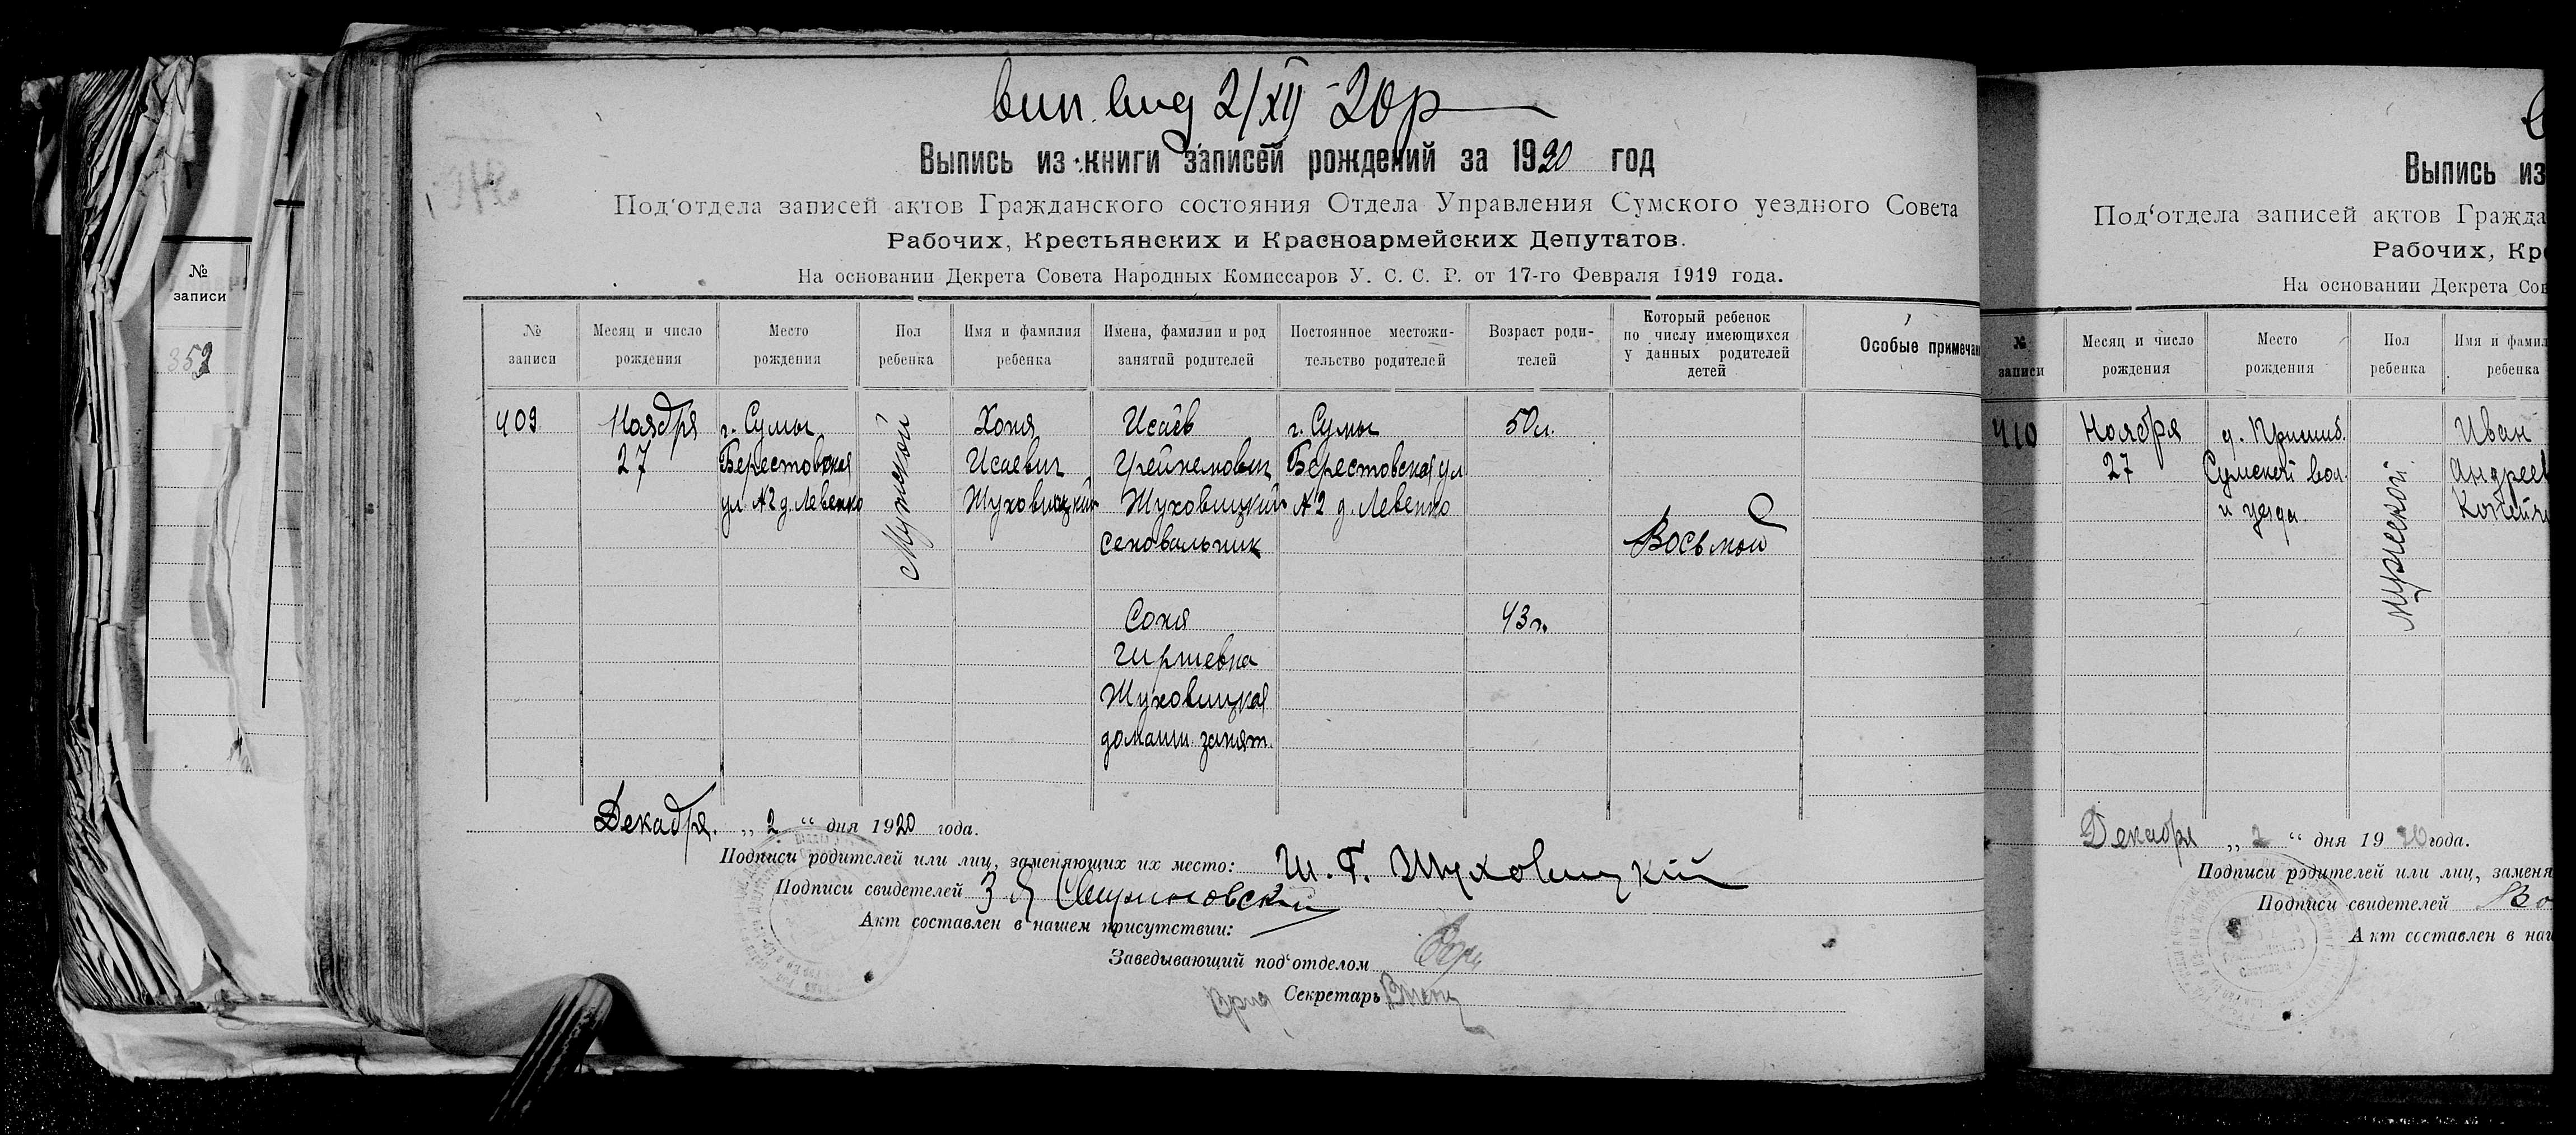 вип. вид 2/XII - 20 р
Выпись из книги записей рождений за 1920 год
Под'отдела записей актов Гражданского состояния Отдела Управления Сумского уездного Совета
Рабочих, Крестьянских и Красноармейских Депутатов.
На основании Декрета Совета Народных Комиссаров У. С. С. Р. от 17-го Февраля 1919 года.
№ записи
Месяц и число рождения
Место рождения
Пол ребенка
Имя и фамилия ребенка
Имена, фамилии и род занятий родителей
Постоянное местожительство родителей
Возраст родителей
Который ребенок по числу имеющихся у данных родителей детей
Особые примечан
409
Ноября
27
г. Сумы
Берестовская
ул №2 д. Левенко
Мужской
Хоня
Исаевич
Шуховицкий
Исаев
Шуховицкий
сеновальник
г. Сумы
Берестовская ул
№2 д. Левенко
50 л.
Восьмой
Соня
Гиршевна
Шуховицкая
домашн. занят.
43 г.
Декабря „ 2 “ дня 1920 года.
Подписи родителей или лиц, заменяющих их место: Ш. Г. Шуховицкій
Подписи свидетелей
Акт составлен в нашем присутствии:
Заведывающий под'отделом
Врид Секретарь
№
записи
353
Выпись из
Под'отдела записей актов Гражда
Рабочих, Кре
На основании Декрета Сов
№ записи
Месяц и число рождения
Место рождения
Пол ребенка
Имя и фамил
ребенка
410
Ноября
27
Сумской вол.
и уезда
мужской
Иван
Андреев
Декабря „ 2 “ дня 1920 года.
Подписи родителей или лиц, заменя
Подписи свидетелей
Акт составлен в наш